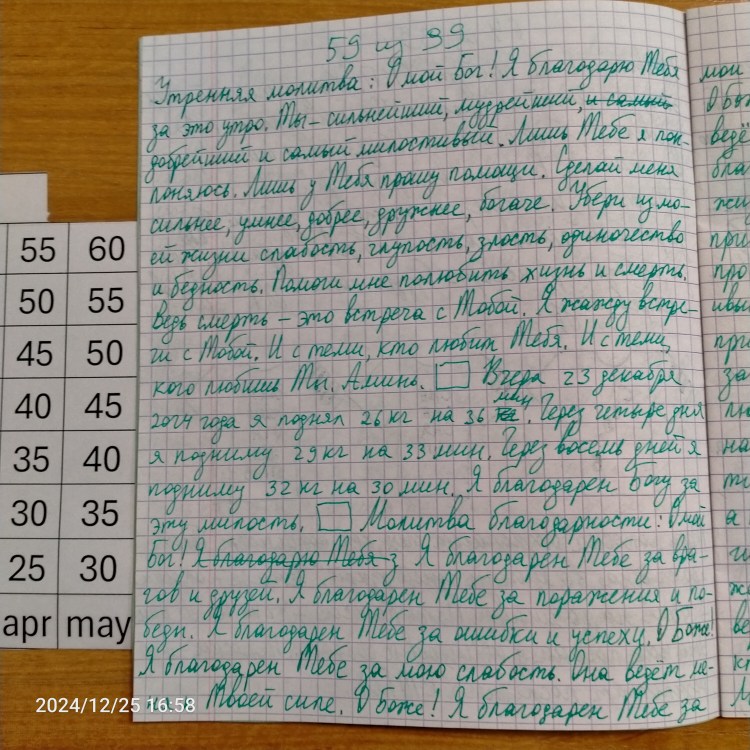 59 из 99
Утренняя молитва: О мой Бог! Я благодарю Тебя
за это утро. Ты – сильнейший, мудрейший, и самый
добрейший и самый милостивый. Лишь Тебе я пок-
лоняюсь. Лишь у Тебя прошу помощи. Сделай меня
сильнее, умнее, добрее, дружнее, богаче. Убери из мо-
ей жизни слабость, глупость, злость, одиночество
и бедность. Помоги мне полюбить жизнь и смерть.
Ведь смерть – это встреча с Тобой. Я жажду встре-
чи с Тобой. И с теми, кто любит Тебя. И с теми,
кого любишь Ты. Аминь. Вчера 23 декабря
2024 года я поднял 26 кг на 36 мин. Через четыре дня
я подниму 29 кг на 33 мин. Через восемь дней я
подниму 32 кг на 30 мин. Я благодарен Богу за
эту милость. Молитва благодарности: О мой
Бог! Я благодарю Тебя з Я благодарен Тебе за вра-
гов и друзей. Я благодарен Тебе за поражения и по-
беды. Я благодарен Тебе за ошибки и успехи. О Боже!
Я благодарен Тебе за мою слабость. Она ведёт ме-
Твоей силе. О Боже! Я благодарен Тебе за
55 60
50 55
45 50
40 45
35 40
30 35
25 30
apr may
мои
ведё
2024/12/25 16:58